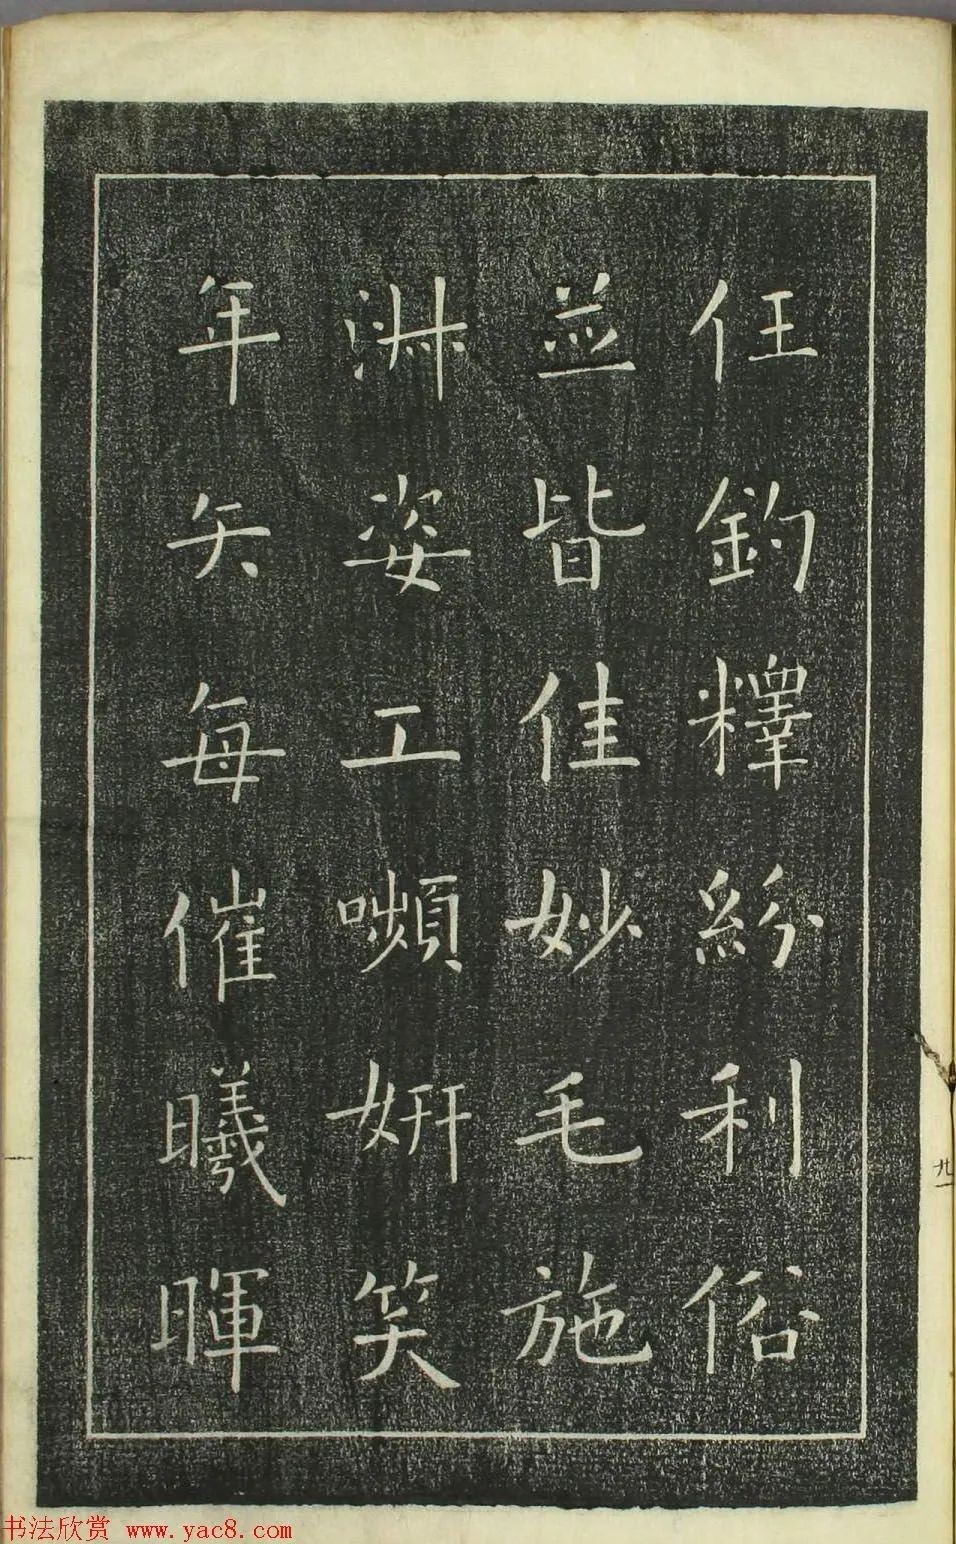 任釣釋紛利俗
並皆佳妙毛施
淋姿工嚬妍笑
年矢每催曦暉
九一
书法欣赏 www.yac8.com